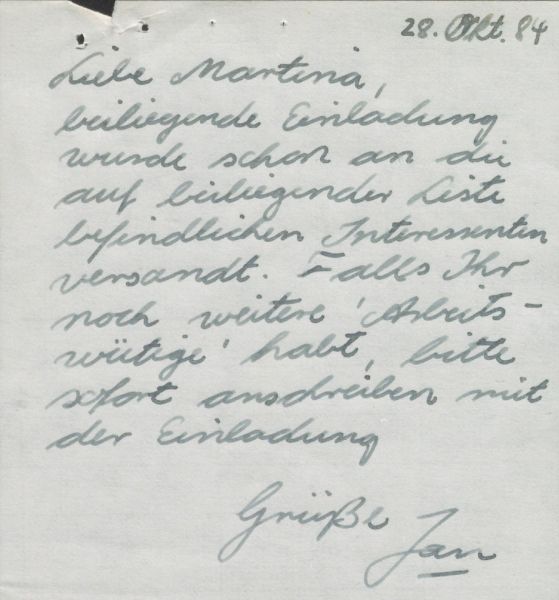 28. Okt. 84
Liebe Martina,
beiliegende Einladung
wurde schon an die
auf beiliegender Liste
befindlichen Interessenten
versandt. Falls Ihr
noch weitere 'Arbeits-
wütige' habt, bitte
sofort anschreiben mit
der Einladung
Grüße Jan